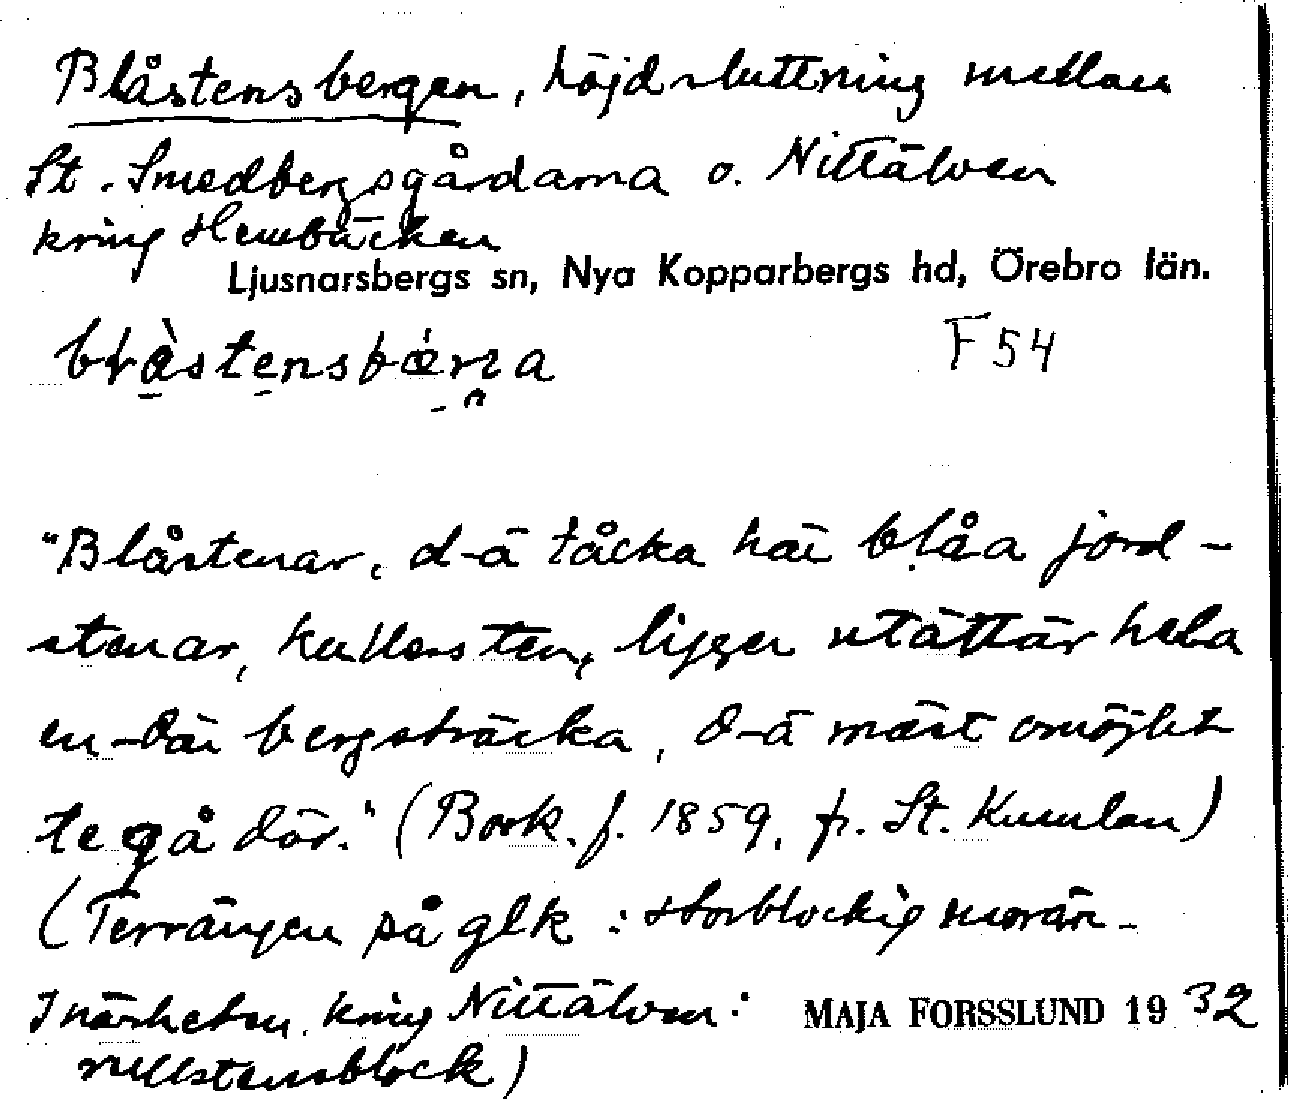 Blåstensbergen, höjdsluttning mellan
St. Smedbergsgårdarna o. Nittälven
kring Hembäcken
Ljusnarsbergs sn, Nya Kopparbergs hd, Örebro län.
blàstensbæra
F 54
"Blåstenar, d-ä tåcka häi blåa jord-
stenar, kullersten, ligger utättär hela
en-däi bergsträcka, d-ä mäst omöjlit
te gå där." (Book. f. 1859, fr. St. Kumlan)
(Terrängen på glk : storblockig morän -
I närheten, kring Nittälven:
rullstensblock)
MAJA FORSSLUND 1932